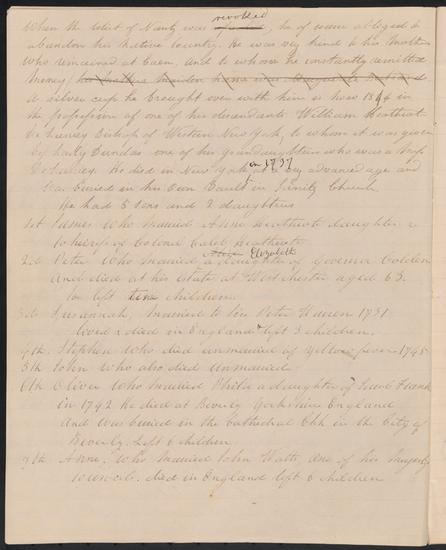 When the edict of Nantz was revoked, he of course obliged to
abandon his native Country. He was very kind to his Mother
who remained at Caen, and to whom he constantly remitted
money. his mother's maiden name was
A silver cup he brought over with him is now 1844 in
the possession of one of his descendants William Heathcote
De Lancey Bishop of Western New York, to whom it was given
by Lady Dundas one of his Granddaughters who was a Miss
De Lancey. He died in New York in 1737 at a very advanced age and
was buried in his own Vault in Trinity Church
He had 5 sons and 2 daughters
1st James who married Anne Heathcote daughter &
Co heiress of Colonel Caleb Heathcote
2d Peter who married Alice Elizabeth a daughter of Governor Colden
and died at his estate at West Chester aged 63.
he left ten children.
3d Susannah, married to Sir Peter Warren 1731
lived & died in England & left 3 children.
4th Stephen who died unmarried of Yellow fever 1745
5th John who also died unmarried
6th Oliver who married Phila a daughter of Jacob Franks
in 1742 He died at Beverly Yorkshire England
and was buried in the Cathedral Chh in the City of
Beverly. Left 6 children
7th Anne, who married John Watts one of his Majesty's
Council. died in England left 6 children